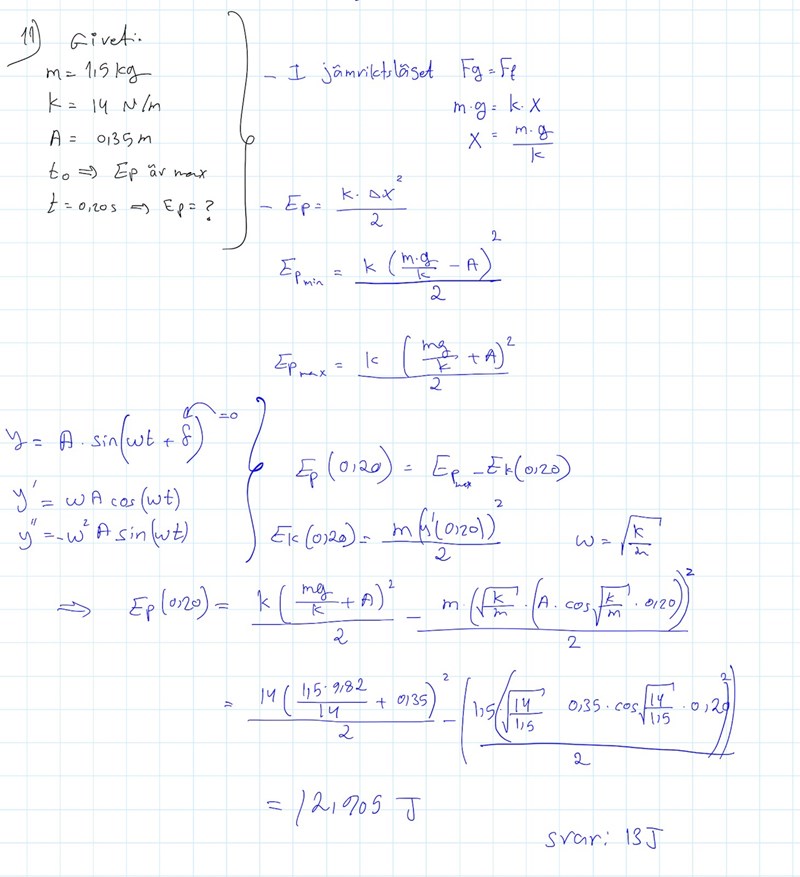 11) Givet:
m = 1,5 kg
k = 14 N/m
A = 0,35 m
t₀ ⇒ Ep är max
t = 0,20s ⇒ Ep = ?
- I jämviktsläget Fg = Ff
m·g = k·x
x = m·g / k
- Ep = k·Δx² / 2
Ep min = k (m·g/k - A)² / 2
Ep max = k (mg/k + A)² / 2
y = A·sin(ωt + δ) =0
y' = ωA cos(ωt)
y'' = -ω² A sin(ωt)
Ep(0,20) = Ep max - Ek(0,20)
Ek(0,20) = m(y'(0,20))² / 2
ω = √(k/m)
⇒ Ep(0,20) = k(mg/k + A)² / 2 - m·(√(k/m)·(A·cos√(k/m)·0,20))² / 2
= 14(1,5·9,82/14 + 0,35)² / 2 - (1,5(√(14/1,5) 0,35·cos√(14/1,5)·0,20)² / 2)
= 12,905 J
svar: 13J